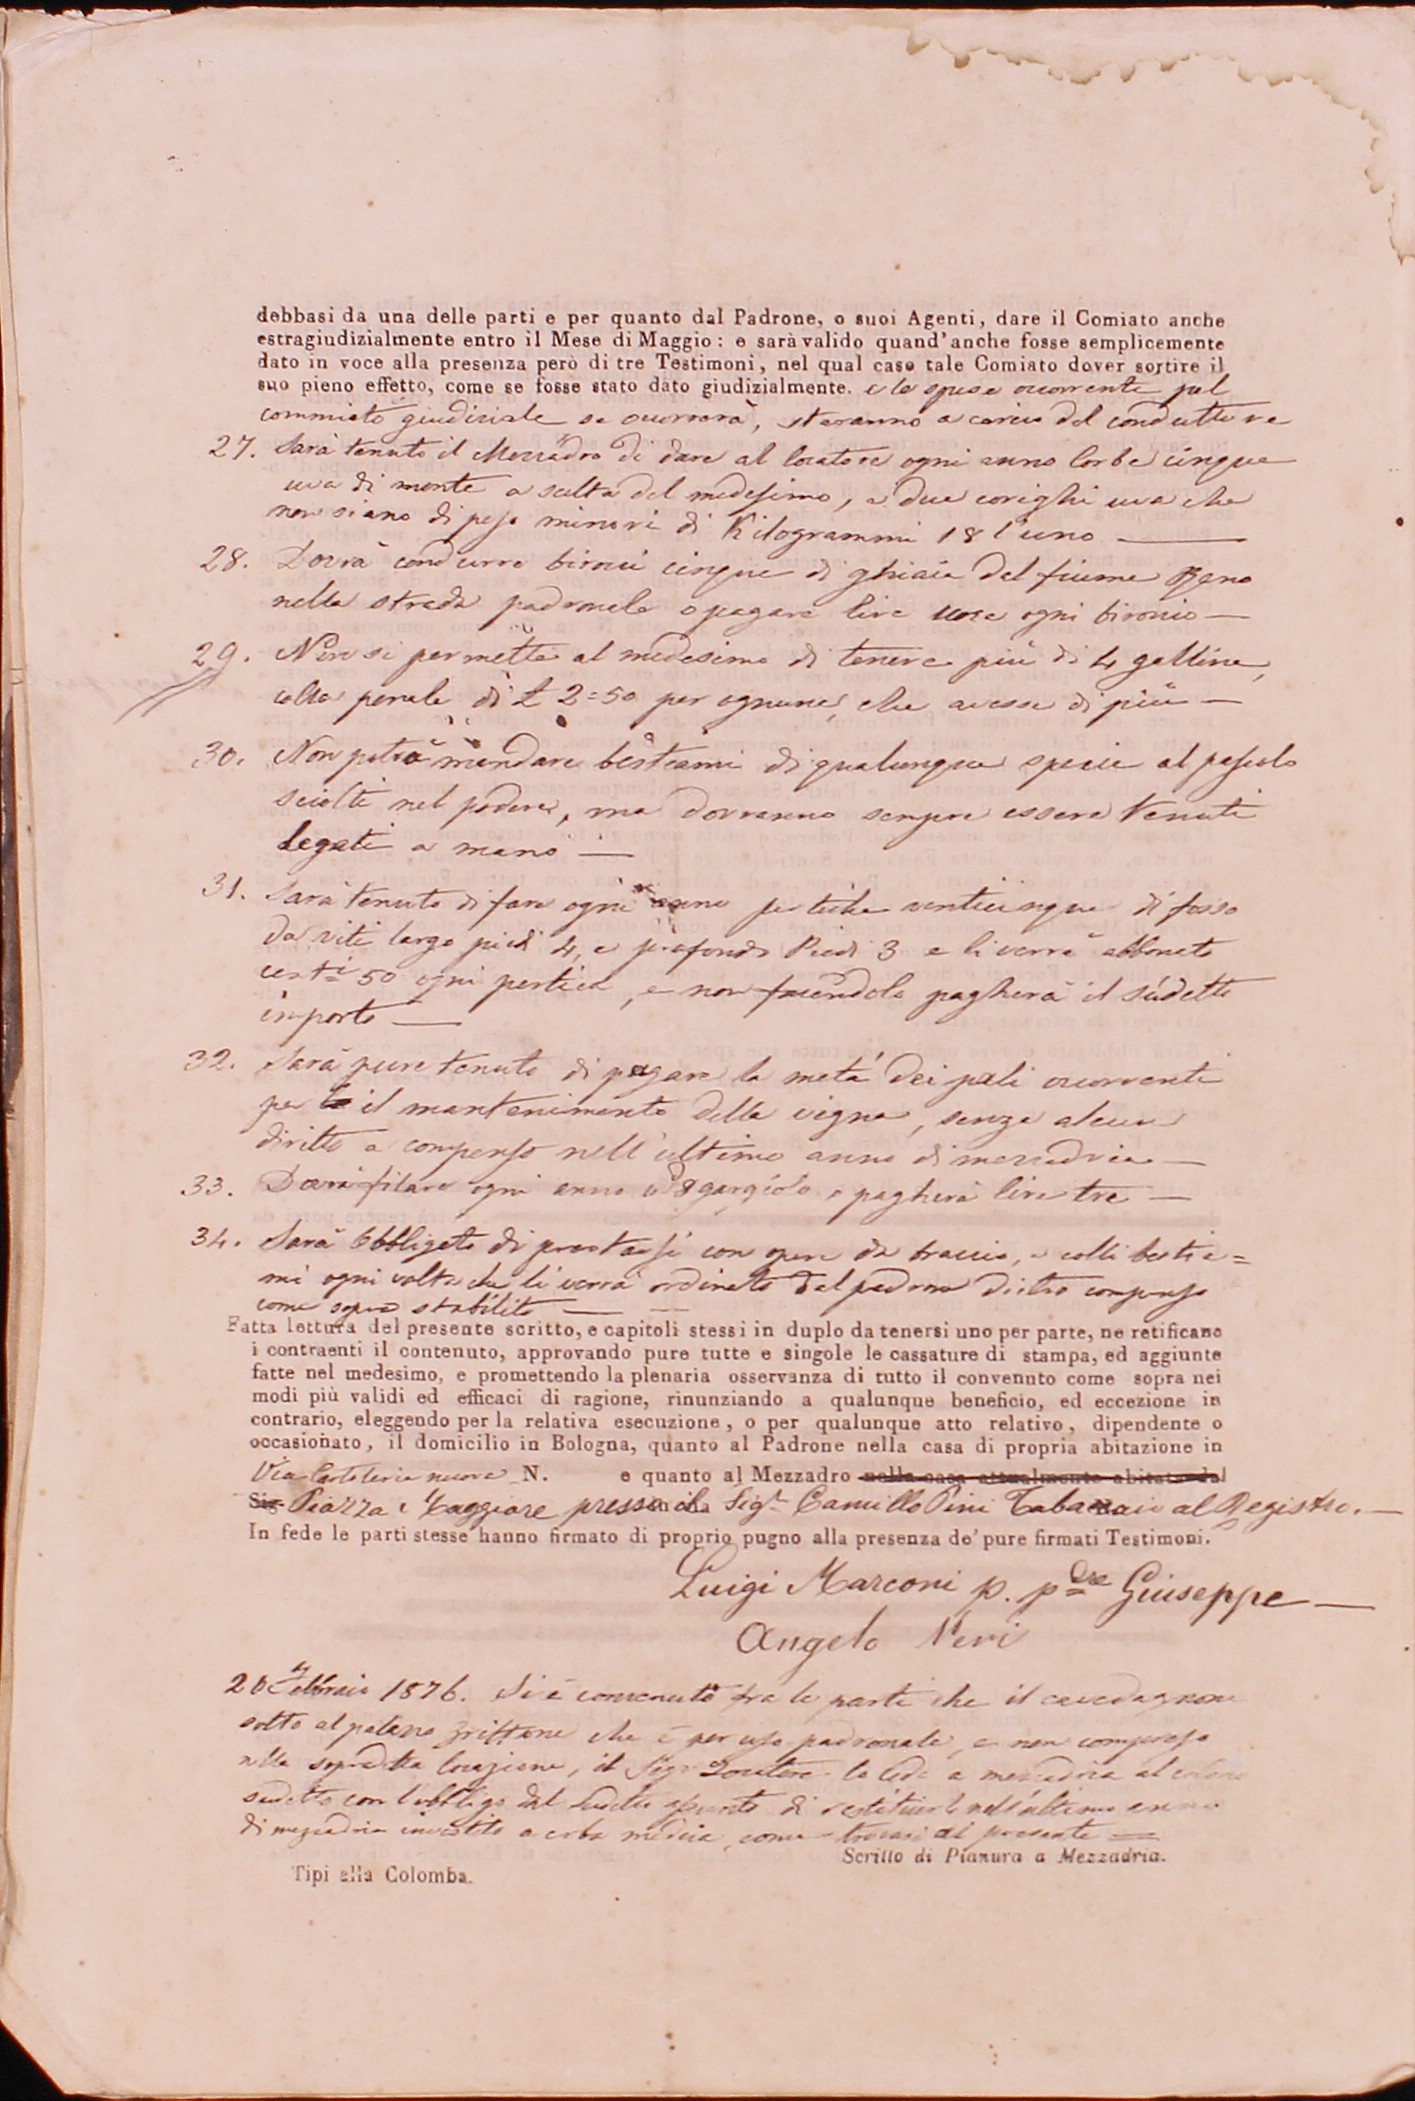 debbasi da una delle parti e per quanto dal Padrone, o suoi Agenti, dare il Comiato anche
estragiudizialmente entro il Mese di Maggio: e sarà valido quand'anche fosse semplicemente
dato in voce alla presenza però di tre Testimoni, nel qual caso tale Comiato dover sortire il
suo pieno effetto, come se fosse stato dato giudizialmente. e le spese occorrenti pel
commiato giudiziale se occorrerà, staranno a carico del conduttore
27. Sarà tenuto il Mezzadro di dare al locatore ogni anno Corbe cinque
uva di monte a scelta del medesimo, e due corighi uva che
non siano di peso minori di Kilogrammi 18 l'uno —
28. Dovrà condurre birocci cinque di ghiaia del fiume Reno
nella strada padronale o pagare lire una ogni birocio —
29. Non si permette al medesimo di tenere più di 4 galline,
colla penale di £ 2=50 per ognuna, che avesse di più —
30. Non potrà mandare bestiami di qualunque specie al pascolo
sciolti nel podere, ma dovranno sempre essere tenuti
legati a mano —
31. Sarà tenuto di fare ogni anno pertiche venticinque di fosso
da viti largo piedi 4, e profondo Piedi 3 e li verrà abbonato
centi 50 ogni pertica, e non facendolo pagherà il sudetto
importo —
32. Sarà pure tenuto di pagare la metà dei pali occorrenti
per il mantenimento della vigna, senza alcun
diritto a compenso nell'ultimo anno di mezzadria —
33. Dovrà filare ogni anno 8 gargiolo o pagherà lire tre —
34. Sarà Obbligato di prestarsi con opere da braccio, e colli bestia=
mi ogni volta che li verrà ordinato dal padrone dietro compenso
come sopra stabilito —
Fatta lettura del presente scritto, e capitoli stessi in duplo da tenersi uno per parte, ne retificano
i contraenti il contenuto, approvando pure tutte e singole le cassature di stampa, ed aggiunte
fatte nel medesimo, e promettendo la plenaria osservanza di tutto il convenuto come sopra nei
modi più validi ed efficaci di ragione, rinunziando a qualunque beneficio, ed eccezione in
contrario, eleggendo per la relativa esecuzione, o per qualunque atto relativo, dipendente o
occasionato, il domicilio in Bologna, quanto al Padrone nella casa di propria abitazione in
Via Cartoleria nuova N. e quanto al Mezzadro nella casa attualmente abitata dal
Sig. Piazza Maggiore presso il Sigr Camillo Pini Tabaccaio al Registro. —
In fede le parti stesse hanno firmato di proprio pugno alla presenza de' pure firmati Testimoni.
Luigi Marconi p. pdre Giuseppe —
Angelo Neri
Febbraio 1876. Si è convenuto fra le parti che il cavedagnone
sotto al palazzo Griffone che è per uso padronale, e non compreso
nella sopradetta locazione, il Sigr Locatore lo cede a mezzadria al colono
sudetto con l'obbligo del sudetto di restituirlo nell'ultimo anno
di mezzadria investito a erba medica, come trovasi al presente
Scritto di Pianura a Mezzadria.
Tipi alla Colomba.